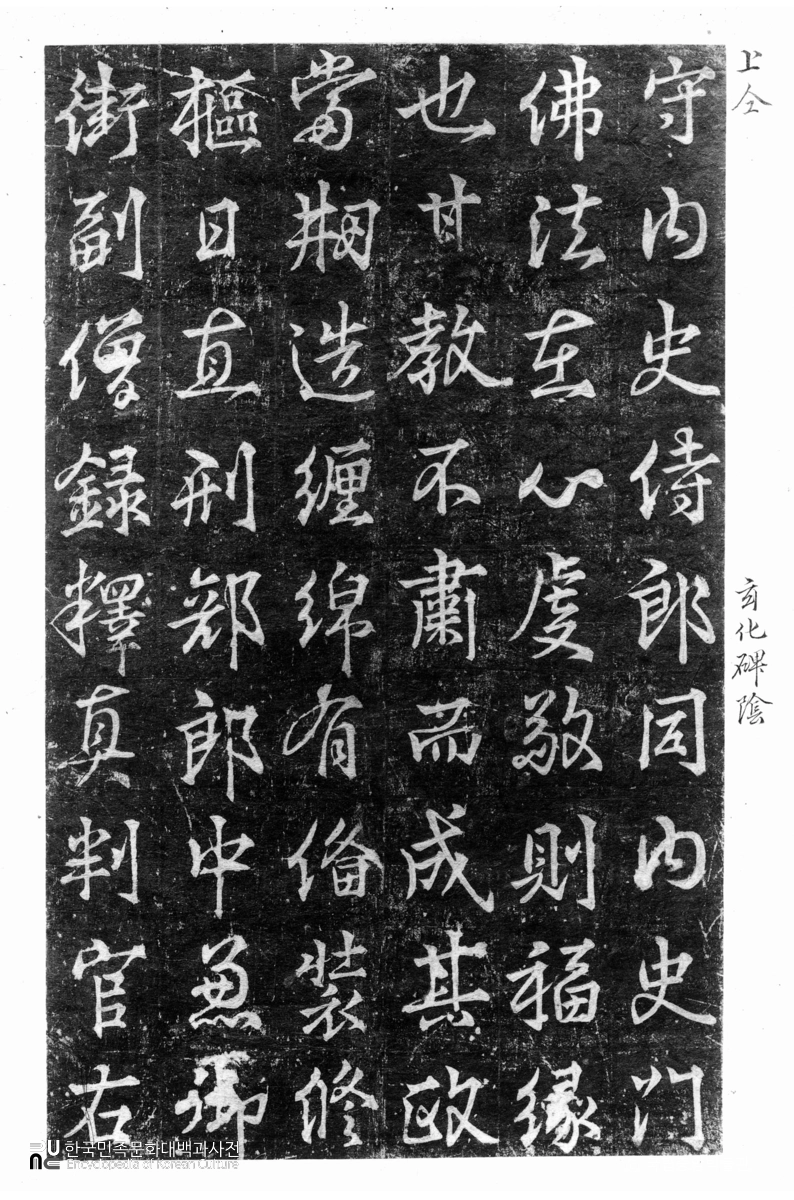 上仝
玄化碑陰
守内史侍郎同内史門
佛法在心虔敬則福緣
也其教不肅而成其政
當剏造纏綿有偹裝修
樞日直刑部郎中兼御
街副僧録釋真判官右
한국민족문화대백과사전
Encyclopedia of Korean Culture